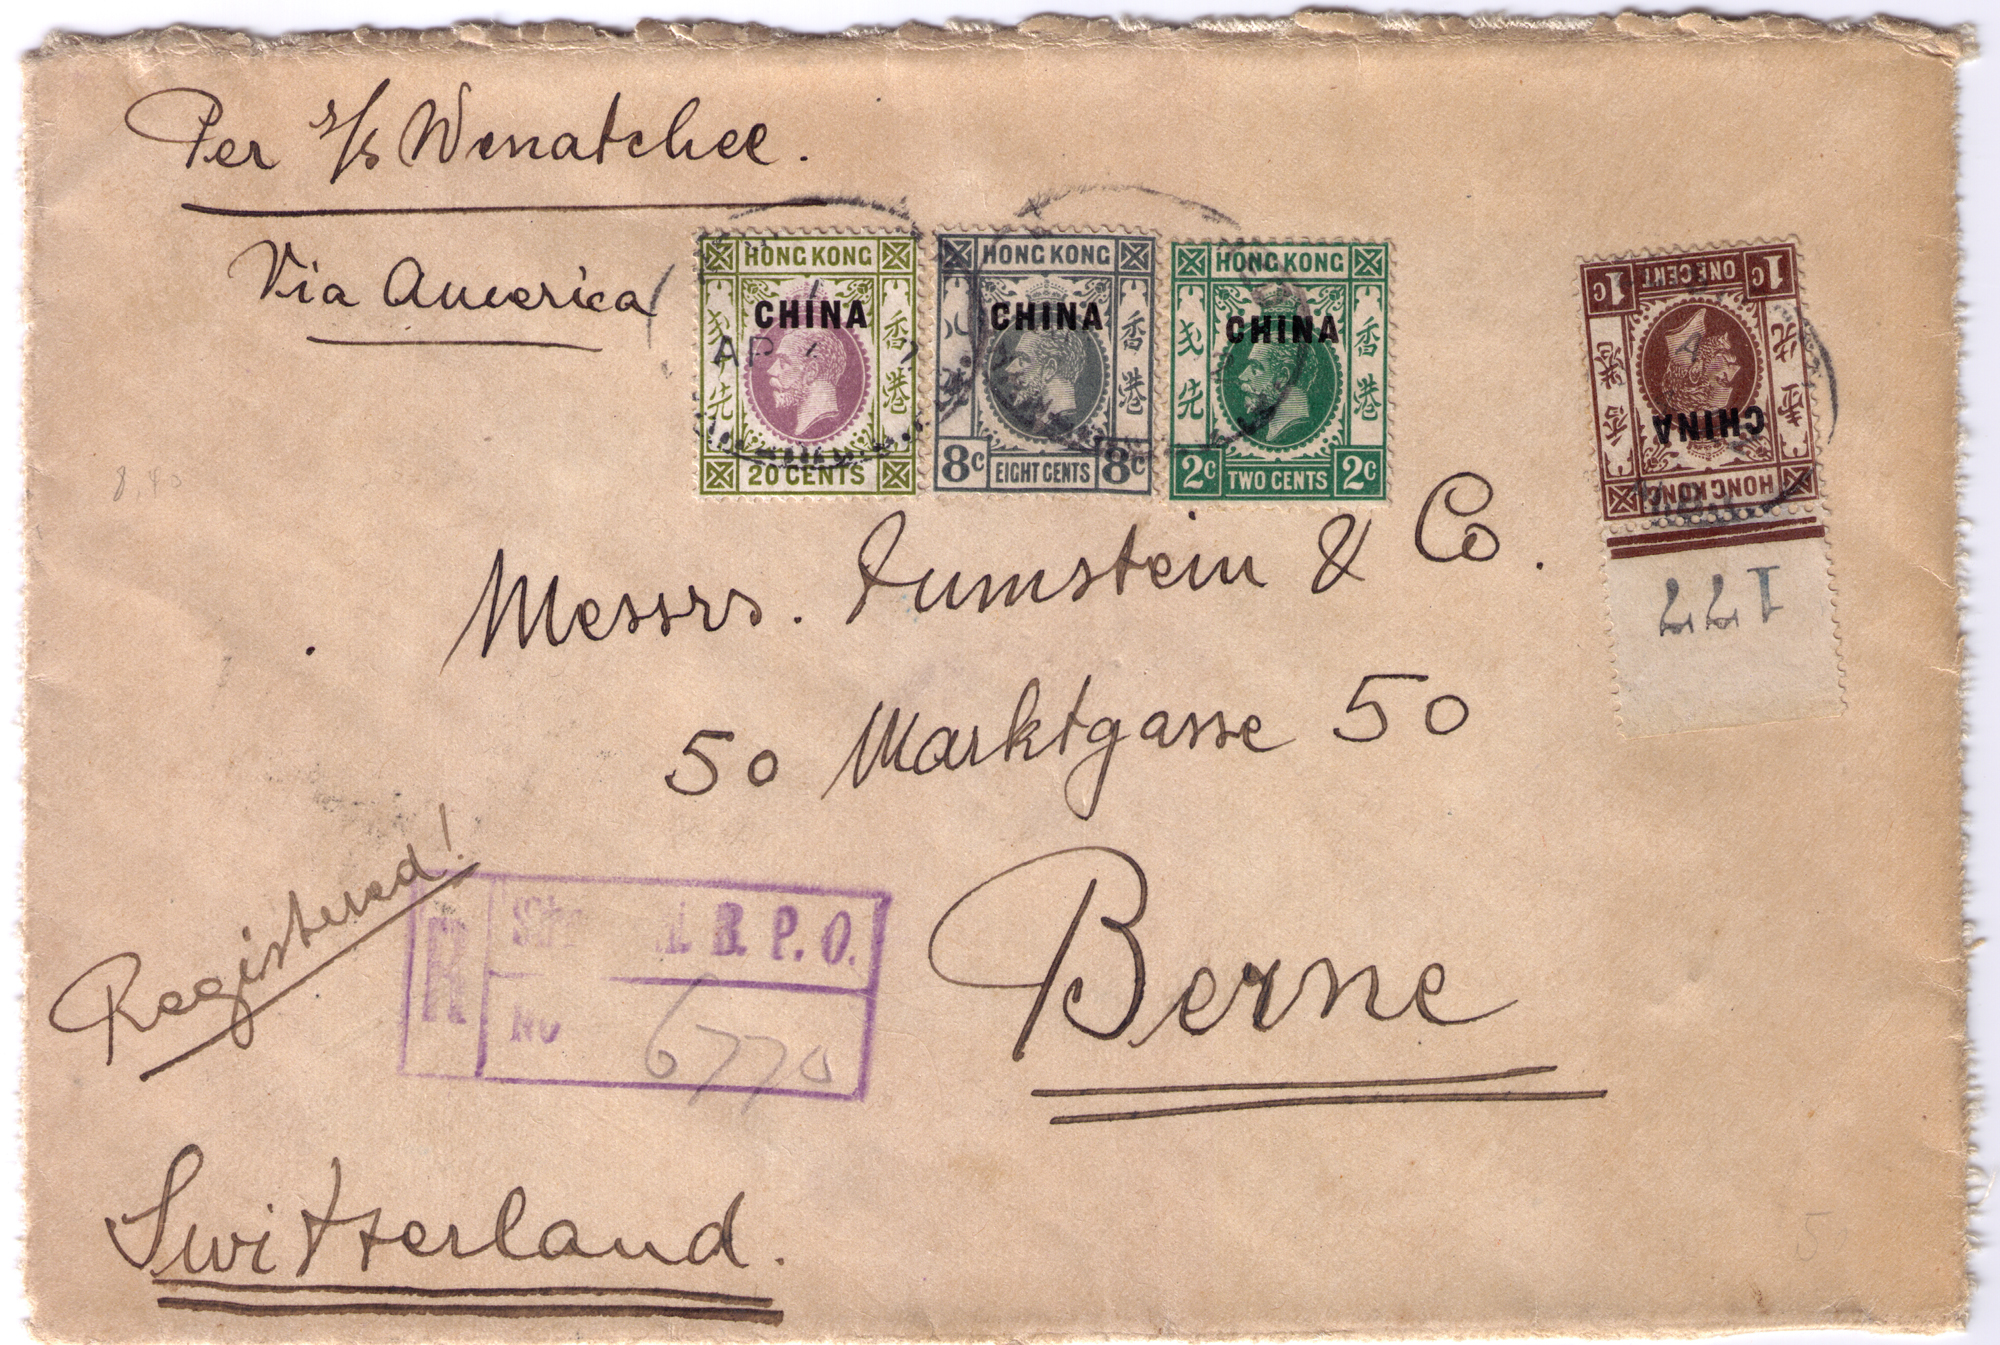 Per s/s Wenatchee.
Via America
HONG KONG
CHINA
香港
先
20 CENTS
AP
HONG KONG
CHINA
香港
8c EIGHT CENTS 8c
HONG KONG
CHINA
香港
先
2c TWO CENTS 2c
1c ONE CENT 1c
香港
壹先
CHINA
HONG KONG
177
Messrs. Zumstein & Co.
50 Marktgasse 50
Berne
Registered!
R
B. P. O.
No 6770
Switzerland.
5